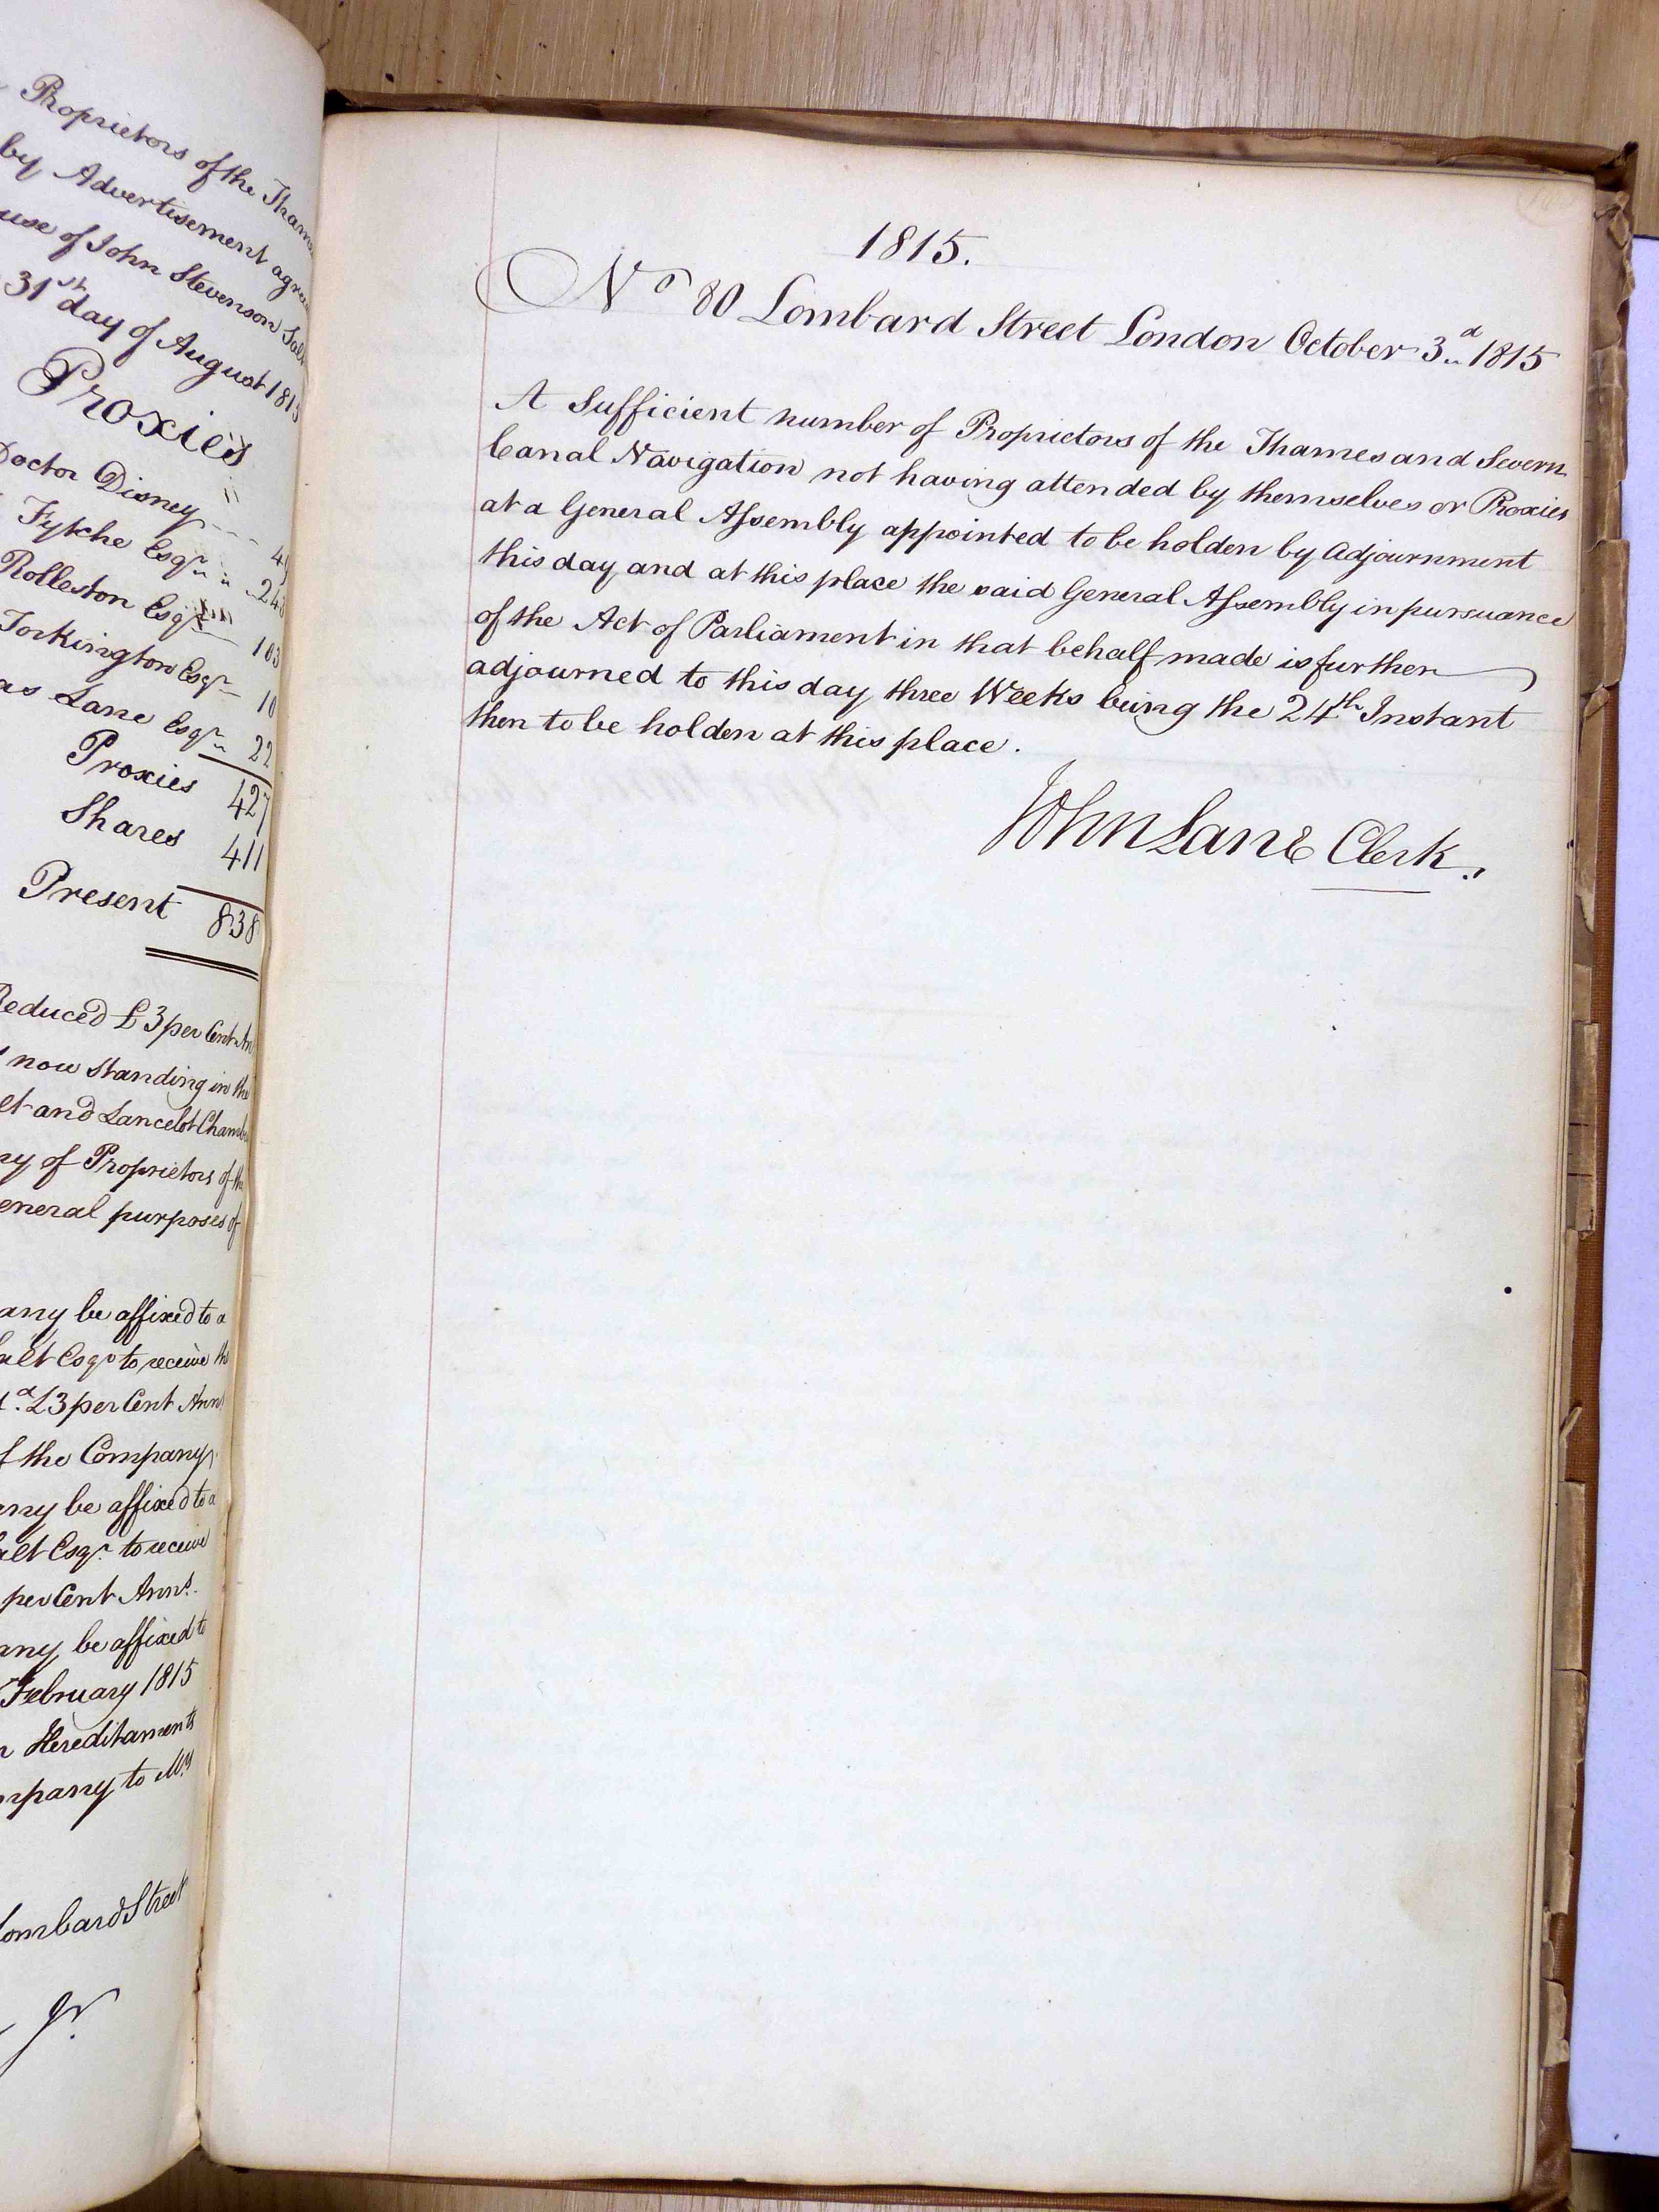 Proprietors of the Thames
by Advertisement agree
use of John Stevenson Salt
31st day of August 1815
Proxies
Doctor Disney
Fytche Esqr 243
Rolleston Esqr 103
Torkington Esqr 10
as Lane Esqr 22
Proxies 427
Shares 411
Present 838
Reduced £3 per Cent An
now standing in the
et and Lancelot Chamb
ny of Proprietors of the
eneral purposes of
any be affixed to a
alt Esqr to receive the
d. £3 per Cent Ann
f the Company
any be affixed to a
alt Esqr. to receive
per Cent Anns.
any be affixed to
February 1815
Hereditaments
mpany to Mr
Lombard Street
Jr.
1815.
No 80 Lombard Street London October 3d 1815
A Sufficient number of Proprietors of the Thames and Severn
Canal Navigation not having attended by themselves or Proxies
at a General Assembly appointed to be holden by Adjournment
this day and at this place the said General Assembly in pursuance
of the Act of Parliament in that behalf made is further
adjourned to this day three Weeks being the 24th Instant
then to be holden at this place.
John Lane Clerk.